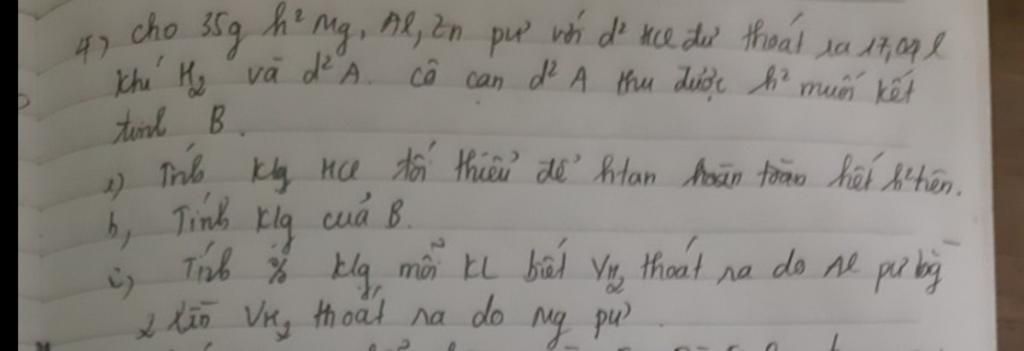 4) Cho 35g h² Mg, Al, Zn pư với d² HCl dư thoát ra 17,04 l
khí H₂ và d² A. Cô cạn d² A thu được h² muối kết
tinh B.
a) Tính klg HCl tối thiểu để htan hoàn toàn hết h² trên.
b, Tính klg của B.
c) Tính % klg mỗi KL biết VH₂ thoát ra do Al pư bg
2 lần VH₂ thoát ra do Mg pư.